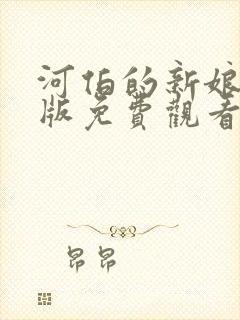 河伯的新娘
版免費觀看
昂昂